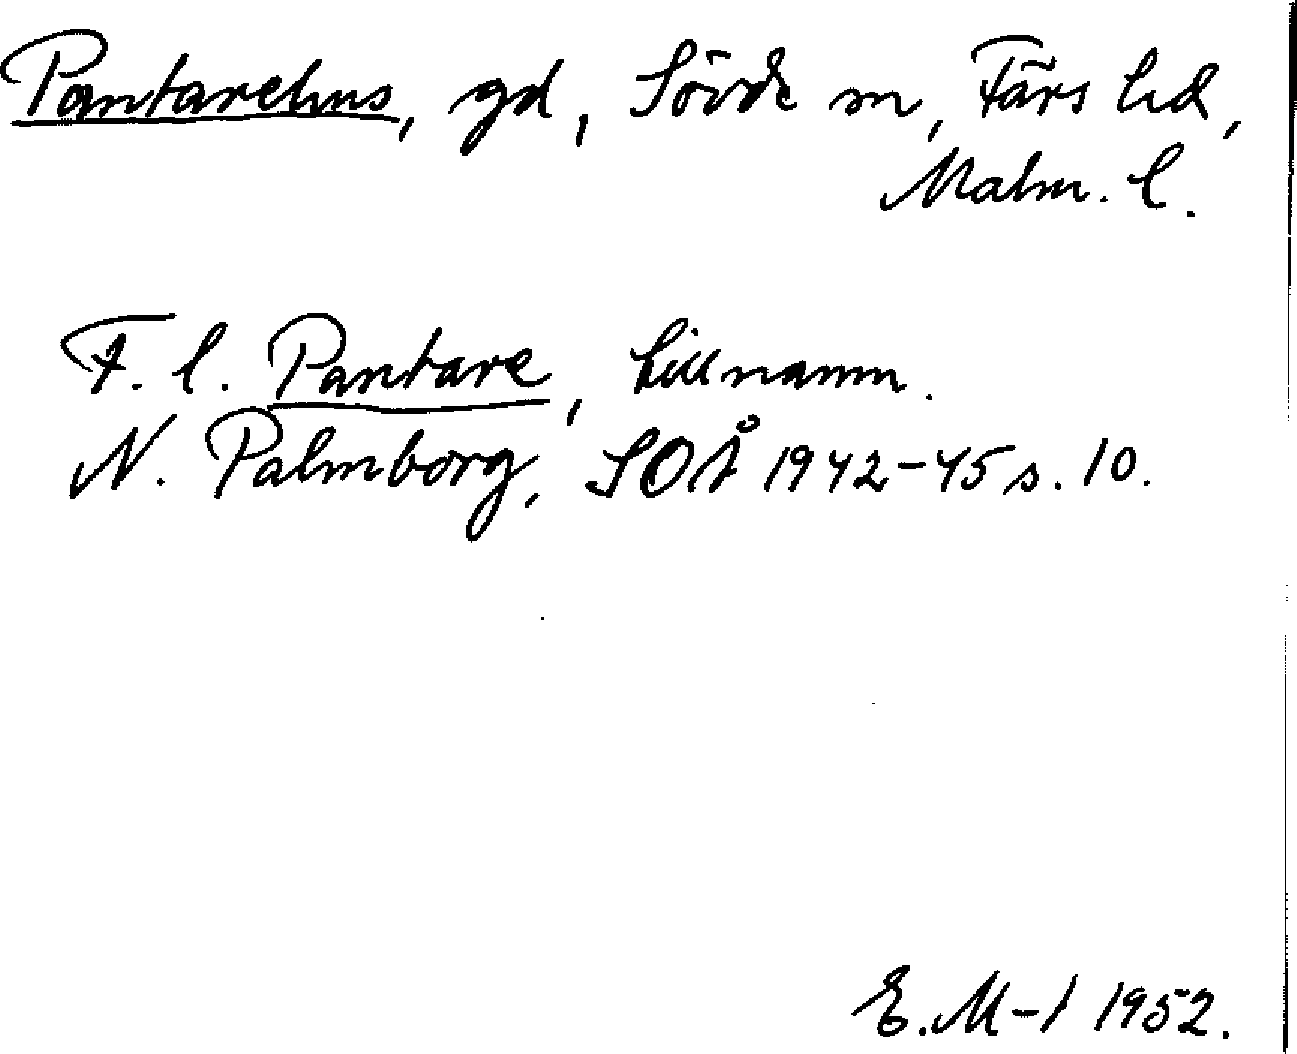 Pantarehus, gd, Sövde sn, Färs hd,
Malm. l.
F. l. Pantare, tillnamn.
N. Palmborg, SOÅ 1942-45 s. 10.
E. M-l 1952.